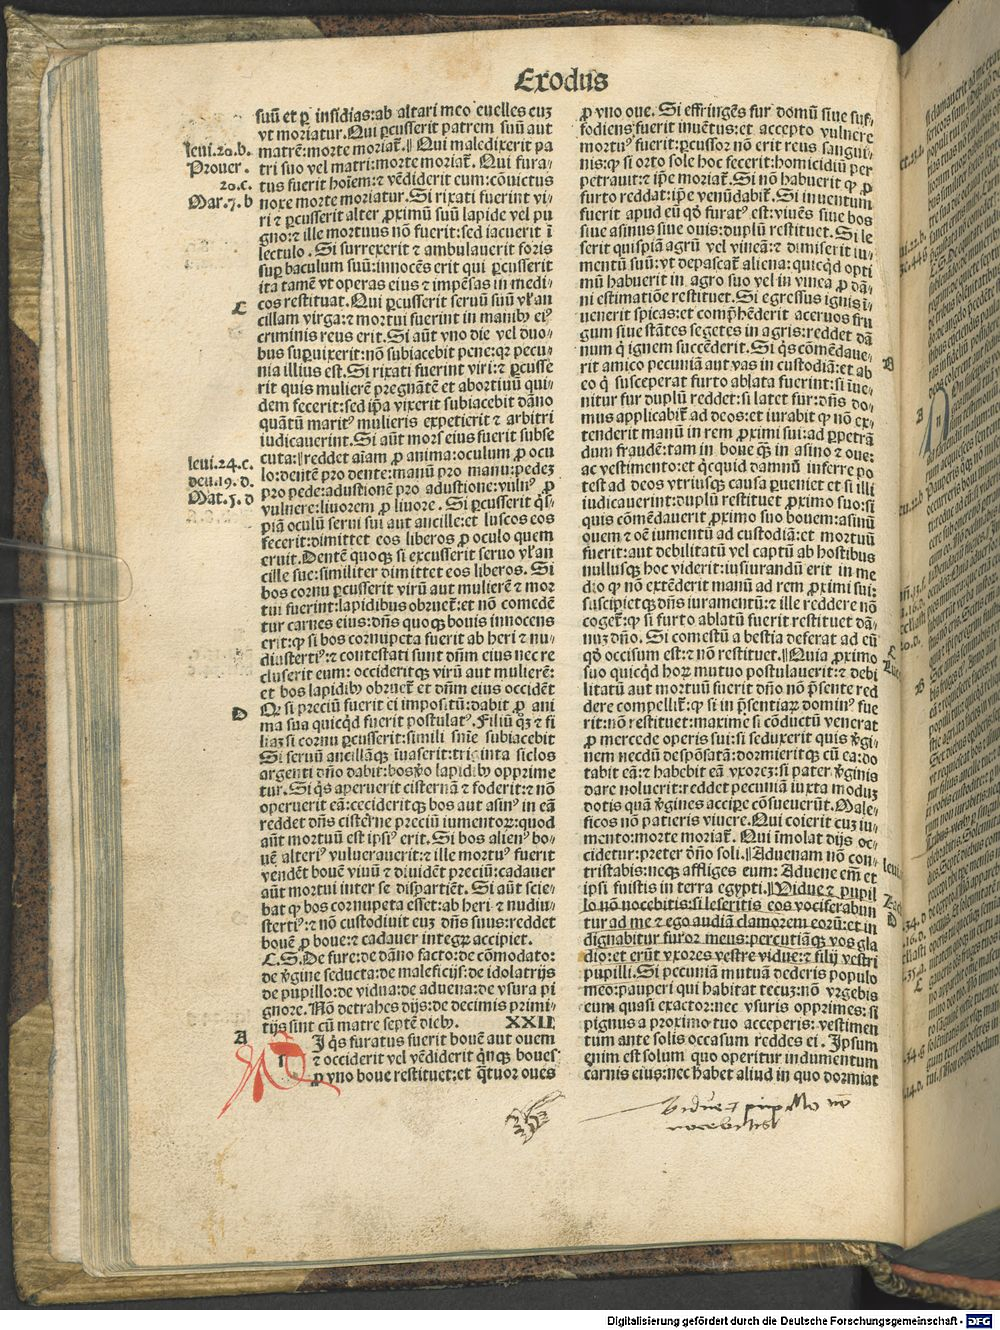 Exodus
suū et ꝑ insidias:ab altari meo euelles euꝫ
vt moriatur. Qui ꝑcusserit patrem suū aut
matrē:morte moriat̄. Qui maledixerit pa
tri suo vel matri:morte moriat̄. Qui fura-
tus fuerit hoīem:ꞇ vēdiderit eum:cōuictus
noxe morte moriatur. Si rixati fuerint vi-
ri ꞇ ꝑcusserit alter ꝓximū suū lapide vel pu
gno:ꞇ ille mortuus nō fuerit:sed iacuerit ī
lectulo. Si surrexerit ꞇ ambulauerit foris
suꝑ baculum suū:innocēs erit qui ꝑcusserit
ita tamē vt operas eius ꞇ impēsas in medi-
cos restituat. Qui ꝑcusserit seruū suū vl̓ an
cillam virga:ꞇ mortui fuerint in manibꝫ eiꝰ
criminis reus erit. Si aūt vno die vel duo-
bus suꝑuixerit:nō subiacebit pene:qꝛ pecu-
nia illius est. Si rixati fuerint viri:ꞇ ꝑcusse
rit quis mulierē pregnātē et abortiuū qui-
dem fecerit:sed ip̄a vixerit subiacebit dāno
quātū maritꝰ mulieris expetierit ꞇ arbitri
iudicauerint. Si aūt mors eius fuerit subse
cuta:reddet aīam ꝓ anima:oculum ꝓ ocu
lo:dentē pro dente:manū pro manu:pedeꝫ
pro pede:adustionē pro adustione:vulnꝰ ꝓ
vulnere:liuorem ꝓ liuore. Si ꝑcusserit q̄s-
piā oculū serui sui aut ancille:et luscos eos
fecerit:dimittet eos liberos ꝓ oculo quem
eruit. Dentē quoqꝫ si excusserit seruo vl̓ an
cille sue:similiter dimittet eos liberos. Si
bos cornu ꝑcusserit virū aut mulierē ꞇ mor
tui fuerint:lapidibus obruet̄:et nō comedē
tur carnes eius:dn̄s quoqꝫ bouis innocens
erit:ꝙ si bos cornupeta fuerit ab heri ꞇ nu-
diustertiꝰ:ꞇ contestati sunt dn̄m eius nec re
cluserit eum: occideritqꝫ virū aut mulierē:
et bos lapidibꝫ obruet̄ et dn̄m eius occidēt
Qꝛ si preciū fuerit ei impositū:dabit ꝓ ani
ma sua quicqd fuerit postulatꝰ. Filiū qꝫ ꞇ fi
liaꝫ si cornu ꝑcusserit:simili sn̄ie subiacebit
Si seruū ancillāqꝫ inuaserit:triginta siclos
argenti dn̄o dabit:bos ꝟo lapidibꝫ opprime
tur. Si q̄s aperuerit cisternā ꞇ foderit:ꞇ nō
operuerit eā:cecideritqꝫ bos aut asinꝰ in eā
reddet dn̄s cisterne preciū iumentoꝝ:quod
aūt mortuū est ipsiꝰ erit. Si bos alienꝰ bo-
uē alteriꝰ vulnerauerit:ꞇ ille mortuꝰ fuerit
vendēt bouē viuū ꞇ diuidēt preciū:cadauer
aūt mortui inter se dispartiēt. Si aūt scie-
bat ꝙ bos cornupeta esset:ab heri ꞇ nudiu-
stertiꝰ:ꞇ nō custodiuit euꝫ dn̄s suus:reddet
bouē ꝓ boue:ꞇ cadauer integꝝ accipiet.
C. S. De fure:de dāno facto:de cōmodato:
de ꝟgine seducta:de maleficijs:de idolatrijs
de pupillo:de vidua:de aduena:de vsura pi
gnore. Nō detrahes dijs:de decimis primi-
tijs sint cū matre septē diebꝫ. XXII
SI q̄s furatus fuerit bouē aut ouem
ꞇ occiderit vel vēdiderit qnqꝫ boues
ꝓ vno boue restituet:et q̄tuor oues
leui.20.b.
Prouer.
20.c.
Mar.7.b
C
leui.24.c.
deu.19.d.
Mat.5.d
D
A
ꝓ vno oue. Si effringēs fur domū siue suf-
fodiens fuerit inuētus:et accepto vulnere
mortuꝰ fuerit:ꝑcussor nō erit reus sangui-
nis:ꝙ si orto sole hoc fecerit:homicidiū per
petrauit:ꞇ ip̄e moriat̄. Si nō habuerit ꝙ ꝓ
furto reddat:ip̄e venūdabit̄. Si inuentum
fuerit apud eū qd̄ furatꝰ est:viuēs siue bos
siue asinus siue ouis:duplū restituet. Si le
serit quispiā agrū vel vineā:ꞇ dimiserit iu-
mentū suū:vt depascat̄ aliena:quicqd opti
mū habuerit in agro suo vel in vinea ꝓ dā-
ni estimatiōe restituet. Si egressus ignis ī-
uenerit spicas:et comp̄hēderit aceruos fru
gum siue stātes segetes in agris:reddet dā
num q̄ ignem succēderit. Si q̄s cōmēdaue-
rit amico pecuniā aut vas in custodiā:et ab
eo q̄ susceperat furto ablata fuerint:si īue-
nitur fur duplū reddet:si latet fur:dn̄s do-
mus applicabit̄ ad deos:et iurabit ꝙ nō ex-
tenderit manū in rem ꝓximi sui:ad ꝑpetrā
dum fraudē:tam in boue qꝫ in asino ꞇ oue:
ac vestimento:et q̄cquid damnū inferre po
test ad deos vtriusqꝫ causa ꝑueniet et si illi
iudicauerint:duplū restituet ꝓximo suo:si
quis cōmēdauerit ꝓximo suo bouem:asinū
ouem ꞇ oē iumentū ad custodiā:et mortuū
fuerit:aut debilitatū vel captū ab hostibus
nullusqꝫ hoc viderit:iusiurandū erit in me
dio ꝙ nō extēderit manū ad rem ꝓximi sui:
suscipietqꝫ dn̄s iuramentū:ꞇ ille reddere nō
coget̄:ꝙ si furto ablatū fuerit restituet dā-
nuꝫ dn̄o. Si comestū a bestia deferat ad eū
qd̄ occisum est:ꞇ nō restituet. Quia ꝓximo
suo quicqd hoꝝ mutuo postulauerit:ꞇ debi
litatū aut mortuū fuerit dn̄o nō p̄sente red
dere compellit̄:ꝙ si in p̄sentiaꝝ dominꝰ fue
rit:nō restituet:maxime si cōductū venerat
ꝓ mercede operis sui:si seduxerit quis ꝟgi-
nem necdū despōsatā:dormieritqꝫ cū ea:do
tabit eā:ꞇ habebit eā vxoreꝫ:si pater ꝟginis
dare noluerit:reddet pecuniā iuxta moduꝫ
dotis quā ꝟgines accipe cōsueuerūt. Male-
ficos nō patieris viuere. Qui coierit cuꝫ iu-
mento:morte moriat̄. Qui īmolat dijs oc-
cidetur:preter dn̄o soli. Aduenam nō con-
tristabis:neqꝫ affliges eum: Aduene em̄ et
ipsi fuistis in terra egypti. Vidue ꞇ pupil
lo nō nocebitis:si leseritis eos vociferabun
tur ad me ꞇ ego audiā clamorem eorū:et in
dignabitur furor meus:percutiāqꝫ vos gla
dio:et erūt vxores vestre vidue:ꞇ filij vestri
pupilli. Si pecuniā mutuā dederis populo
meo:pauperi qui habitat tecuꝫ:nō vrgebis
eum quasi exactor:nec vsuris opprimes:si
pignus a proximo tuo acceperis:vestimen
tum ante solis occasum reddes ei. Ipsum
enim est solum quo operitur indumentum
carnis eius:nec habet aliud in quo dormiat
B
C
D
vidue ꞇ pupillo nō
nocebitis
Digitalisierung gefördert durch die Deutsche Forschungsgemeinschaft - DFG